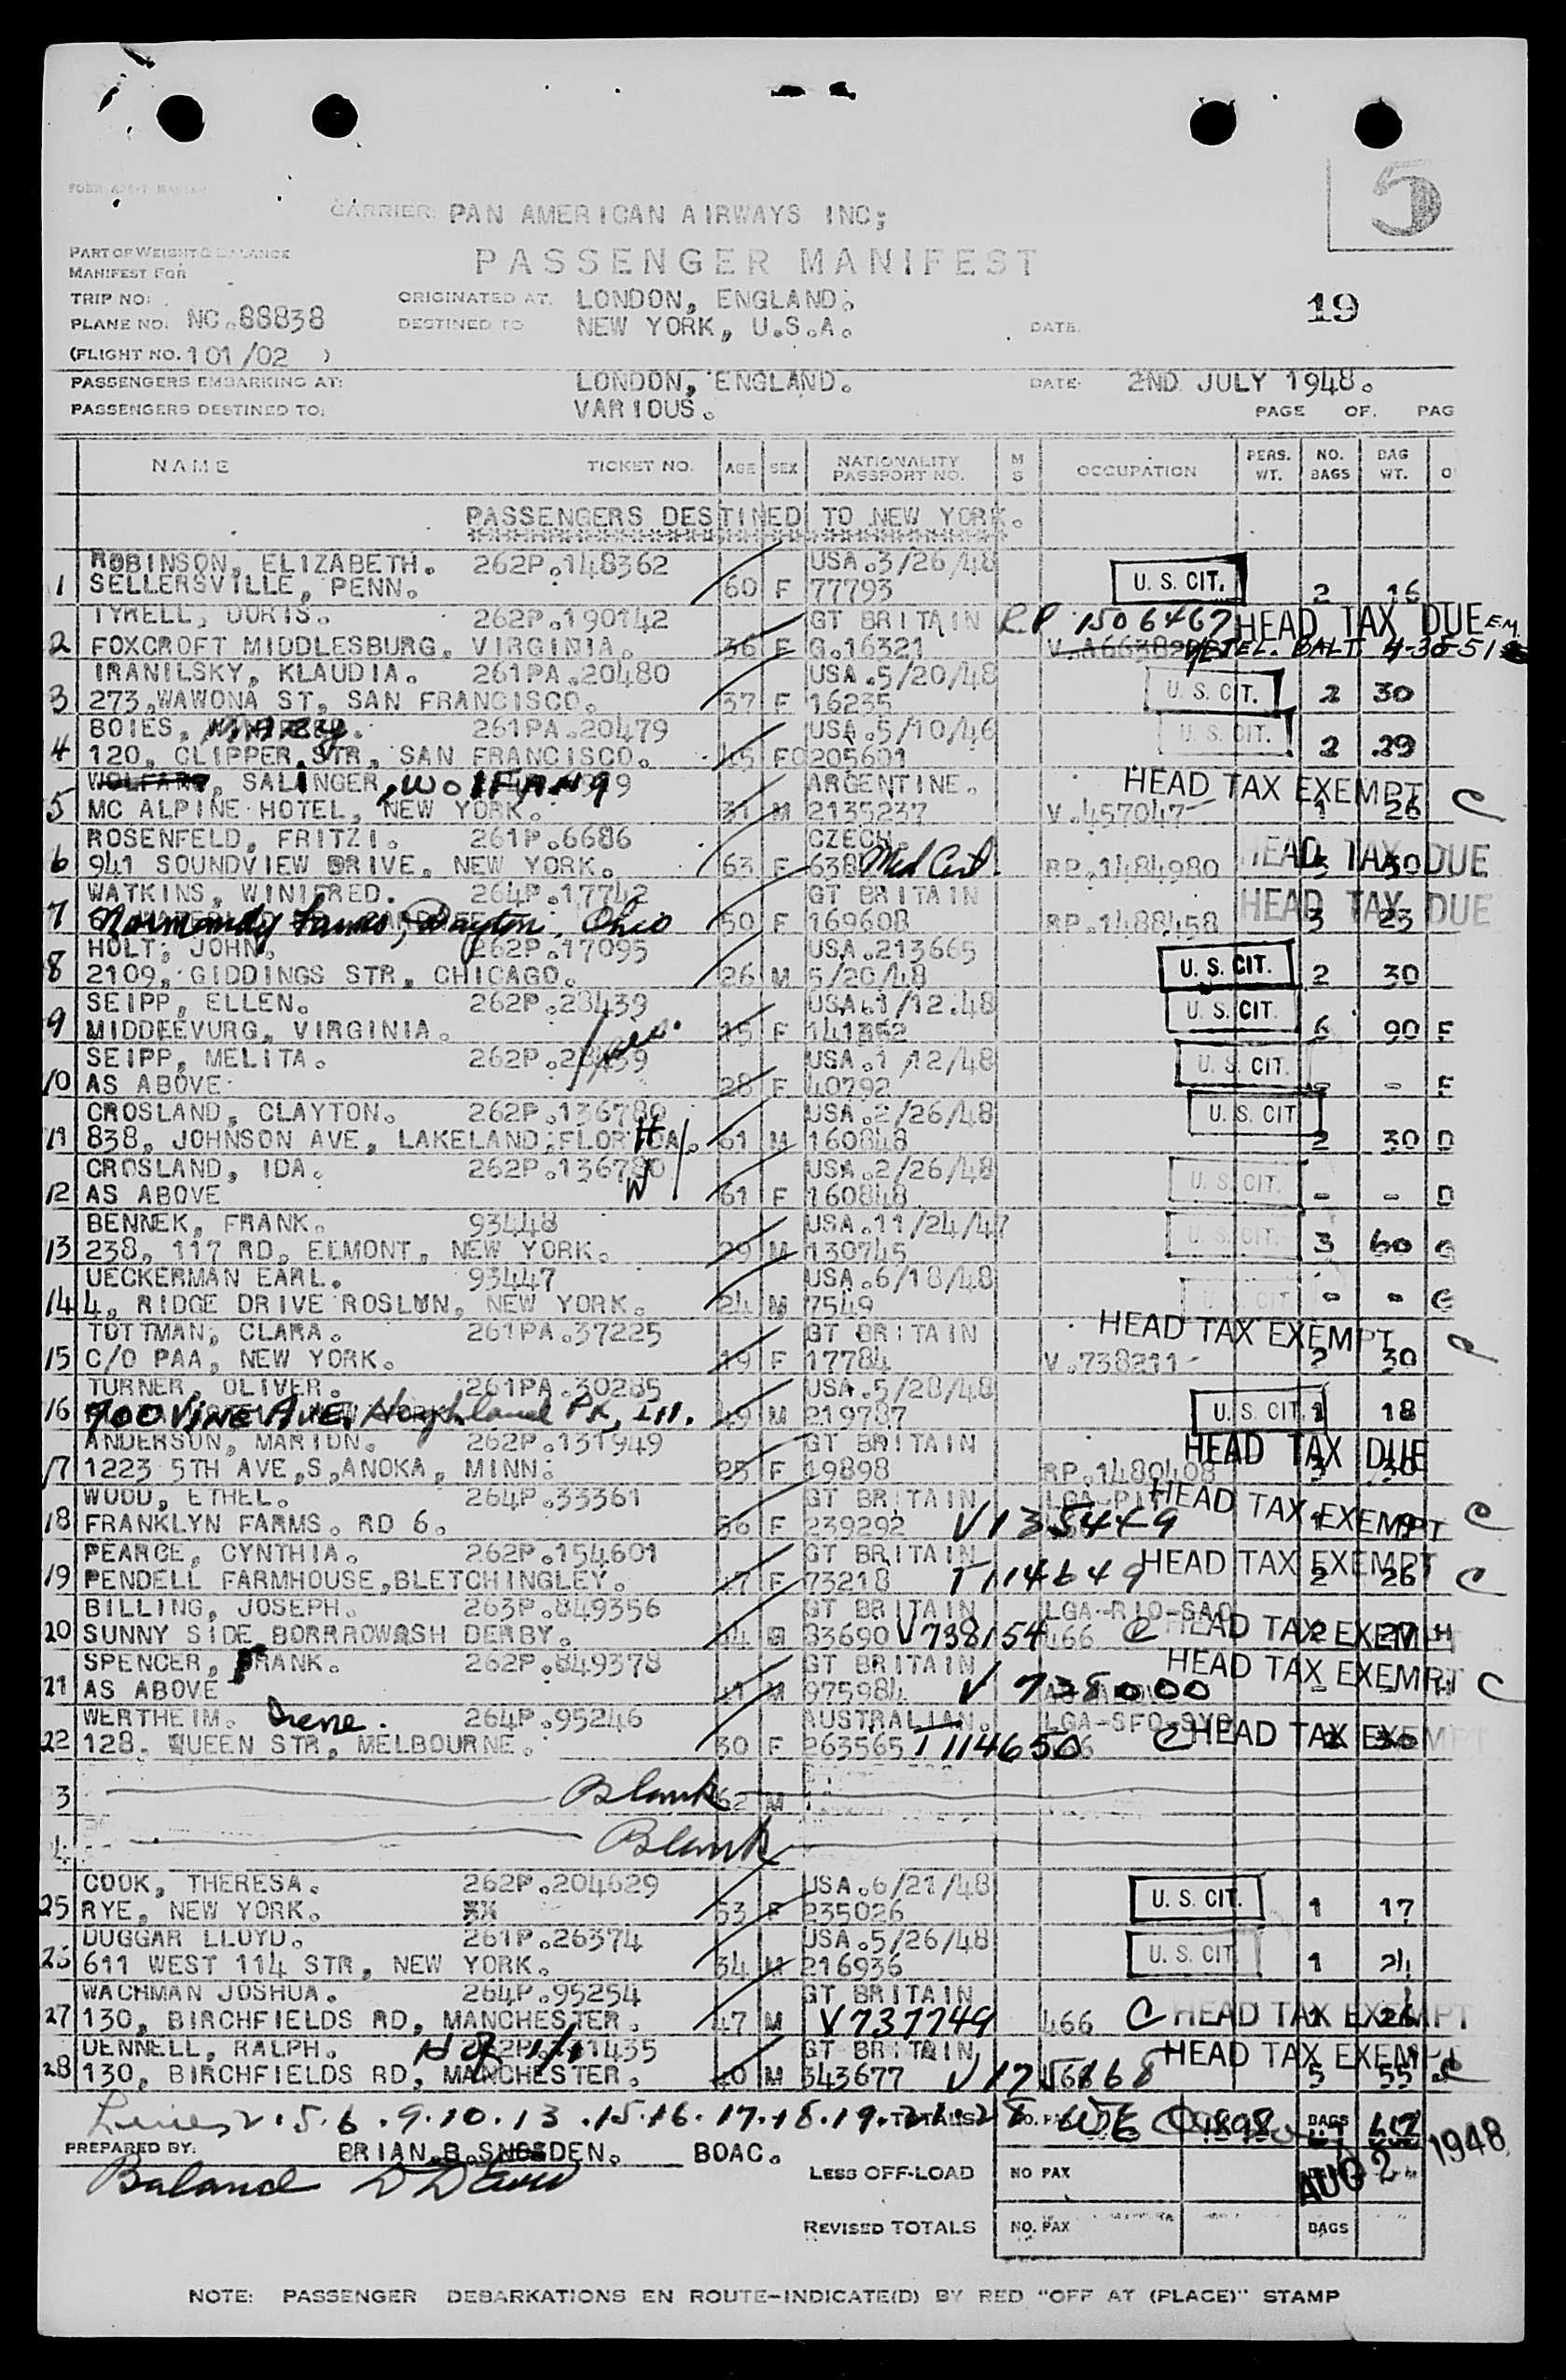 5
CARRIER: PAN AMERICAN AIRWAYS INC;
PART OF WEIGHT & BALANCE
MANIFEST FOR
PASSENGER MANIFEST
TRIP NO: ORIGINATED AT. LONDON, ENGLAND. 19
PLANE NO. NC.88838 DESTINED TO NEW YORK, U.S.A. DATE.
(FLIGHT NO. 101/02 )
PASSENGERS EMBARKING AT: LONDON, ENGLAND. DATE. 2ND JULY 1948.
PASSENGERS DESTINED TO: VARIOUS. PAGE OF. PAG
NAME TICKET NO. AGE SEX NATIONALITY PASSPORT NO. M S OCCUPATION PERS. WT. NO. BAGS BAG WT. O
PASSENGERS DESTINED TO NEW YORK.
ROBINSON, ELIZABETH. 262P.148362 USA.3/26/48
1 SELLERSVILLE, PENN. 60 F 77793 U. S. CIT. 2 16
TYRELL, DORIS. 262P.190142 GT BRITAIN RP 1506467 HEAD TAX DUE E.M.
2 FOXCROFT MIDDLESBURG, VIRGINIA. 36 F G.16321 TEL. BALT. 4-30-51
IRANILSKY, KLAUDIA. 261PA.20480 USA.5/20/48
3 273,WAWONA ST, SAN FRANCISCO. 37 F 16235 U. S. CIT. 2 30
BOIES, MARY. 261PA.20479 USA.5/10/46
4 120, CLIPPER STR, SAN FRANCISCO. 45 F 205601 U. S. CIT. 2 29
SALINGER, WOLFANG ARGENTINE. HEAD TAX EXEMPT
5 MC ALPINE HOTEL, NEW YORK. 31 M 2135237 V.457047 1 26 C
ROSENFELD, FRITZI. 261P.6686 CZECH.
6 941 SOUNDVIEW DRIVE, NEW YORK. 63 F 638 Med Cert. RP.1484980 HEAD TAX DUE
WATKINS, WINIFRED. 264P.17742 GT BRITAIN
7 Normandy Farms, Dayton, Ohio 50 F 169608 RP.1488458 HEAD TAX DUE 3 23
HOLT, JOHN. 262P.17095 USA.213665
8 2109, GIDDINGS STR, CHICAGO. 26 M 5/20/48 U. S. CIT. 2 30
SEIPP, ELLEN. 262P.28439 USA.1/12.48
9 MIDDEEVURG, VIRGINIA. 15 F 141352 U. S. CIT. 6 90 F
SEIPP, MELITA. 262P.28439 USA.1/12/48
10 AS ABOVE 28 F 40792 U. S. CIT. - - F
CROSLAND, CLAYTON. 262P.136780 USA.2/26/48
11 838, JOHNSON AVE, LAKELAND, FLORIDA. H 61 M 160848 U. S. CIT 2 30 D
CROSLAND, IDA. 262P.136780 USA.2/26/48
12 AS ABOVE W 61 F 160848 U. S. CIT. - - D
BENNEK, FRANK. 93448 USA.11/24/47
13 238, 117 RD, ELMONT, NEW YORK. 29 M 130745 U. S. CIT. 3 60 G
UECKERMAN EARL. 93447 USA.6/18/48
14 4, RIDGE DRIVE ROSLYN, NEW YORK. 24 M 7549 U. S. CIT - - G
TOTTMAN, CLARA. 261PA.37225 GT BRITAIN HEAD TAX EXEMPT
15 C/O PAA, NEW YORK. 19 F 17784 V.738211- 2 30
TURNER, OLIVER. 261PA.30285 USA.5/28/48
16 900 VINE AVE, Highland PK, Ill. 49 M 219787 U. S. CIT. 1 18
ANDERSON, MARION. 262P.131949 GT BRITAIN HEAD TAX DUE
17 1223 5TH AVE,S,ANOKA, MINN. 25 F 19898 RP.1480408 3 30
WOOD, ETHEL. 264P.33361 GT BRITAIN HEAD TAX EXEMPT
18 FRANKLYN FARMS. RD 6. 56 F 239292 V135449 C
PEARCE, CYNTHIA. 262P.154601 GT BRITAIN HEAD TAX EXEMPT
19 PENDELL FARMHOUSE,BLETCHINGLEY. 47 F 73218 T1114649 2 26 C
BILLING, JOSEPH. 263P.849356 GT BRITAIN LGA-RIO-SAO
20 SUNNY SIDE BORRROWASH DERBY. 44 33690 V738154 466 C HEAD TAX EXEMPT 2 27 H
SPENCER, FRANK. 262P.849378 GT BRITAIN HEAD TAX EXEMPT
21 AS ABOVE 41 M 975984 V 738000 C
WERTHEIM. Irene. 264P.95246 AUSTRALIAN. LGA-SFO-SYD
22 128, QUEEN STR, MELBOURNE. 30 F 263565 T1114650 C HEAD TAX EXEMPT 30
3 Blank 62 M
Blank
COOK, THERESA. 262P.204629 USA.6/21/48
25 RYE, NEW YORK. 53 F 235026 U. S. CIT. 1 17
DUGGAR LLOYD. 261P.26374 USA.5/26/48
26 611 WEST 114 STR, NEW YORK. 34 M 216936 U. S. CIT 1 24
WACHMAN JOSHUA. 264P.95254 GT BRITAIN
27 130, BIRCHFIELDS RD, MANCHESTER. 47 M V737749 466 C HEAD TAX EXEMPT 1 26
DENNELL, RALPH. GT BRITAIN HEAD TAX EXEMPT
28 130, BIRCHFIELDS RD, MANCHESTER. 40 M 343677 5 55
Lines 2.5.6.9.10.13.15.16.17.18.19.21.28 TOTALS NO. PAX BAGS
PREPARED BY: BRIAN.B.SNOSDEN. BOAC.
LESS OFF-LOAD NO PAX AUG 2 1948
REVISED TOTALS NO. PAX BAGS
NOTE: PASSENGER DEBARKATIONS EN ROUTE-INDICATE(D) BY RED "OFF AT (PLACE)" STAMP